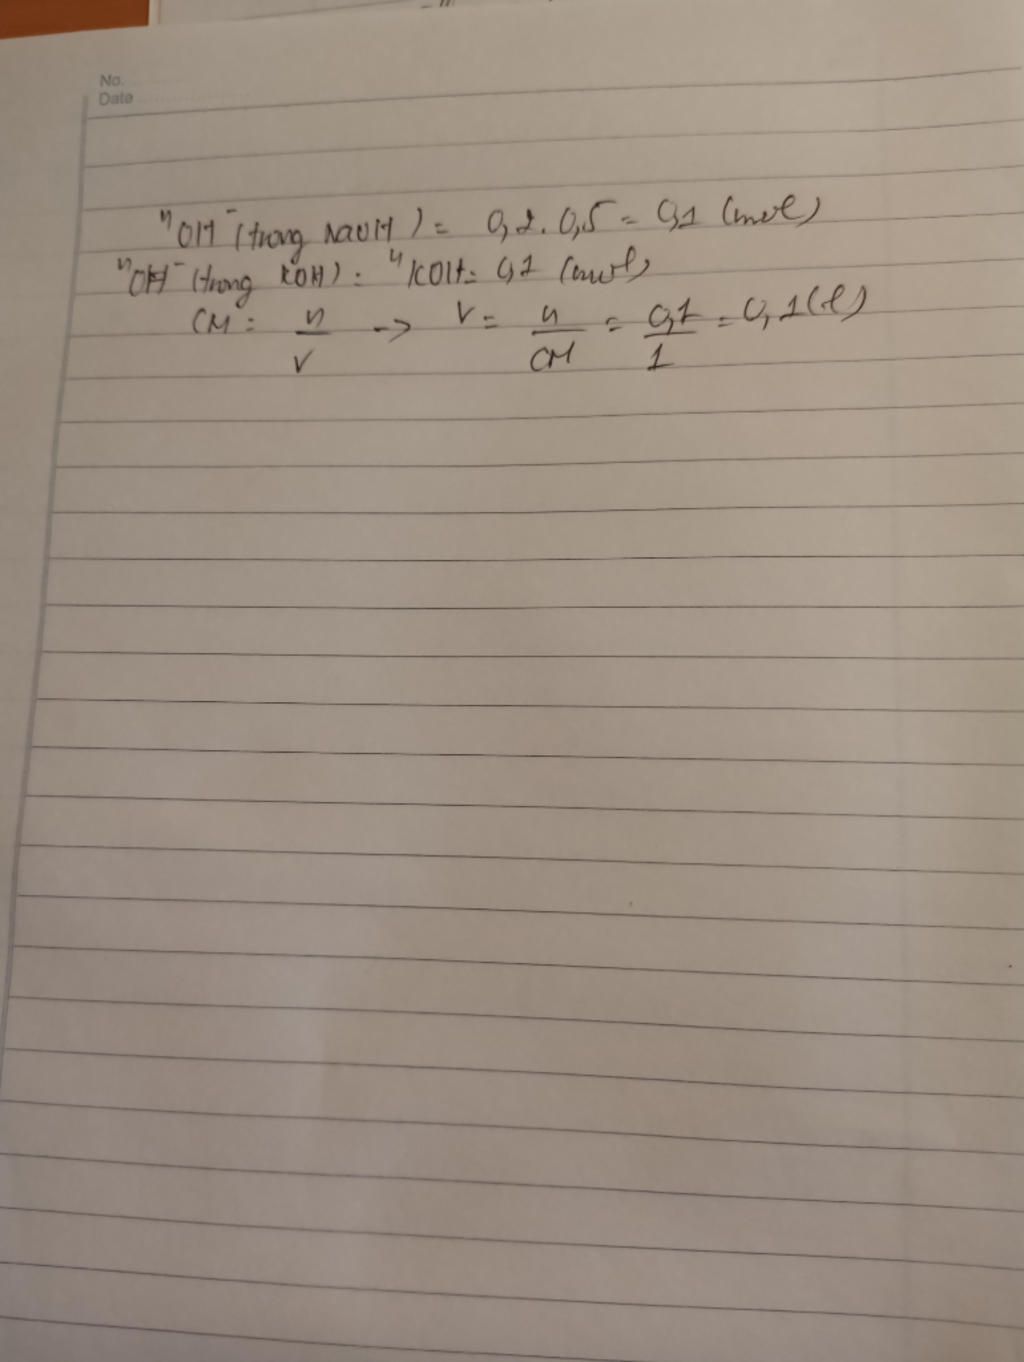 No.
Date
nOH⁻ (trong NaOH) = 0,2. 0,5 = 0,1 (mol)
nOH⁻ (trong KOH) = nKOH = 0,1 (mol)
CM = n/V -> V = n/CM = 0,1/1 = 0,1 (l)